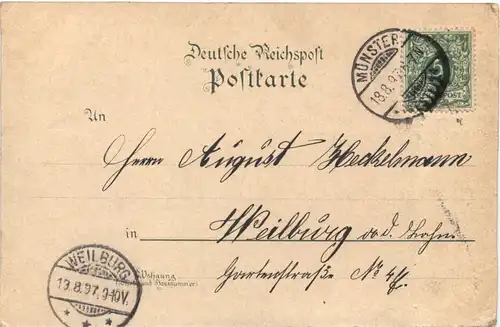 Deutsche Reichspost
Postkarte
MÜNSTER
18.8.97
An
Herrn August Heckelmann
in Weilburg a. d. Lahn.
Gartenstraße No
Wohnung
(Straße und Hausnummer)
WEILBURG
19.8.97. 9-10V.